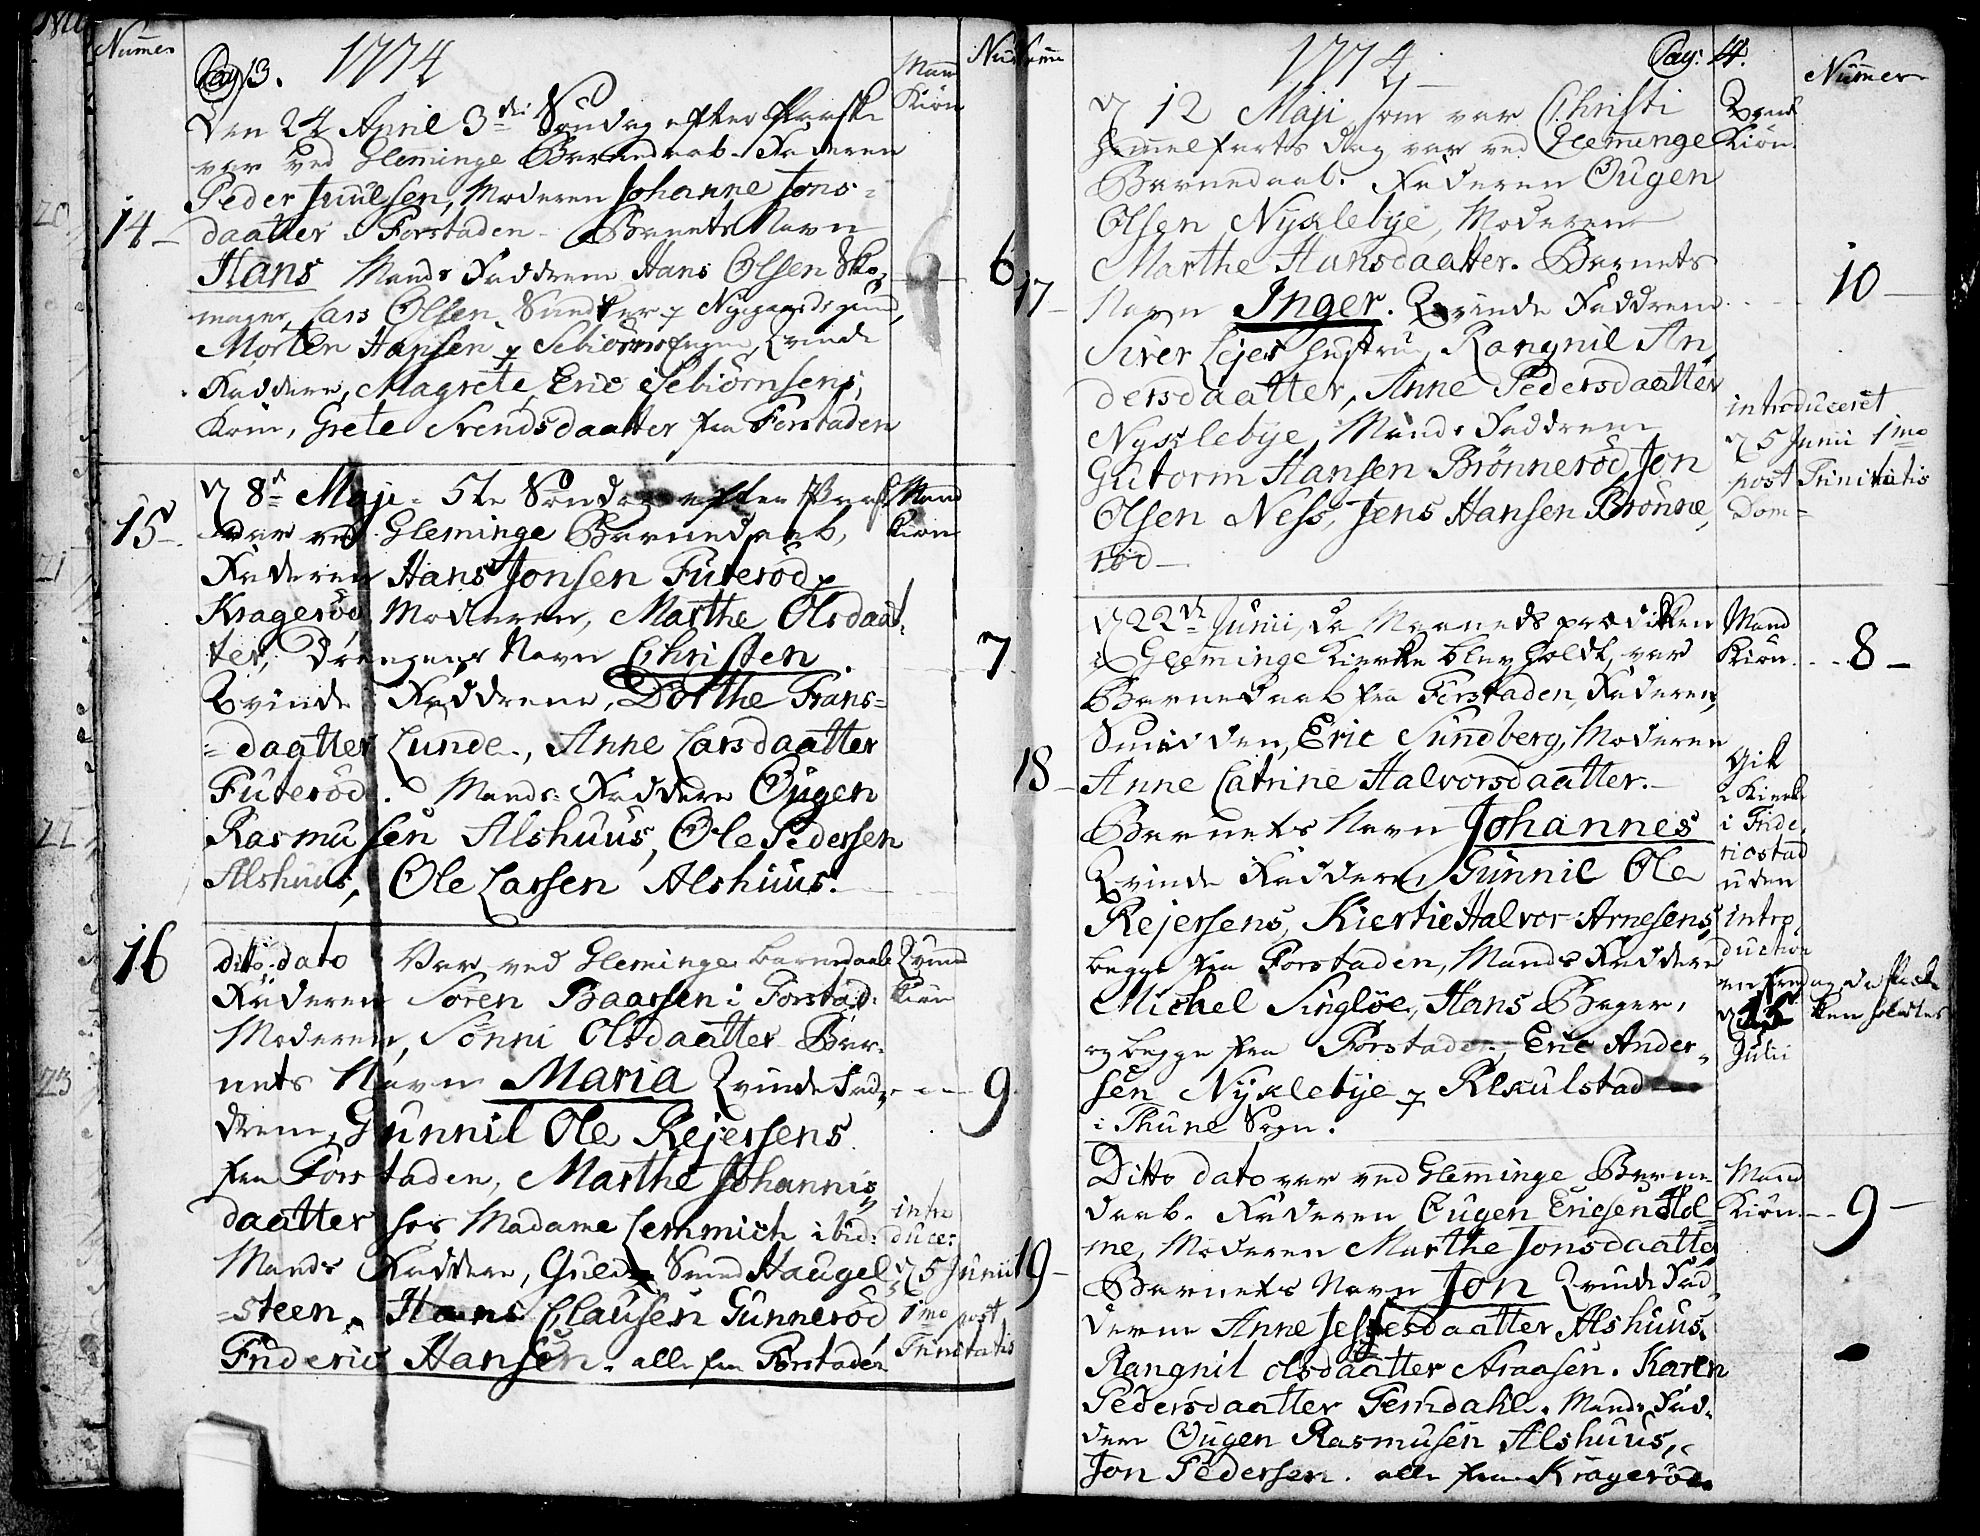 Numer
Pag 3. 1774
Mann Kiön
Den 24 April 3die Söndag efter Paaske
var ved Gleminge Barnedaab. Faderen
Peder Juulsen, Moderen Johanne Jons-
14 - daatter i Forstaden - Barnets Navn
Hans Mands Faddrene Hans Olsen Sko,
6
mager, Lars Olsen
Morten Hansen
Faddere, Magrete Eric Sebiörnsens,
Kone, Grete Svendsdaatter fra Forstaden
d 8de Maji. 5te Söndag efter Paask
Mand Kiön
15 - var ved Gleminge Barnedaab,
Faderen Hans Jonsen Futeröd
Krageröd, Moderen, Marthe Olsdaat
ter, Drengens Navn Christen.
7
Qvinde Faddrene, Dorthe Frans=
=daatter Lunde., Anne Larsdaatter
Futeröd. Mands-Faddere Ougen
Rasmusen Alshuus, Ole Pedersen
Alshuus, Ole Larsen Alshuus.
16
dito dato Var ved Gleminge barnedaab
Qvind Kiön
Faderen Sören Baarsen i Forstad:
Moderen, Sönni Olsdaatter Bar-
nets Navn Maria Qvinde Fad,
9
drene, Gunnil Ole Rejersens
fra Forstaden, Marthe Johannis
daatter hos Madame Lemmich ibid:
Mands Faddere, Haugel
=steen, Hans Clausen Gunneröd
Frideric Hansen. alle fra Forstaden
introduceret
d 5 Junii
1mo post
Trinitatis
1774 Pag: 4.
Nummer
d 12 Maji som var Christi
Qvind Kiön.
Himmelfarts dag var ved Gleminge
Barnedaab. Faderen Ougen
Olsen Nyxlebye, Moderen
Marthe Hansdaatter. Barnets
17 - Navn Inger. Qvinde Faddrene
10 -
Siver Lejes hustrue, Rangnil An
dersdaatter, Anne Pedersdaatter
Nyxlebye, Mands Faddrene
Gutorm Hansen Brönneröd, Jon
Olsen Ness, Jens Hansen Brönne,
röd -
introduceret
d 5 Junii 1mo
post Trinitatis
Dom-
d 22de Junii, da Maanedsprædikken
Mand Kiön.
i Gleminge Kierke blev holdt, var
8 -
Barnedaab fra Forstaden, Faderen,
Smidden, Eric Sundberg, Moderen
18 - Anne Catrine Halvorsdaatter. -
Barnets Navn Johannes
Qvinde Faddere, Gunnil Ole
Rejersens, Kiertie Halvor Arnesens,
begge fra Forstaden, Mands Faddere
Michel Singlöe, Hans Bager,
og begge fra Forstaden, Eric Ander-
sen Nyxlebye
i Thune Sogn.
Gik
i Kierke
i Fride,
ricstad
uden
intro
duction
Julii
Ditto dato var ved Gleminge Barne
Mand Kiön.
daab. Faderen Ougen Ericsen Hol=
9 -
me, Moderen Marthe Jonsdaatte
19 - Barnets Navn Jon Qvinde Fad,
derne Anne Jespersdaatter Alshuus.
Rangnil olsdaatter Araasen. Karen
Pedersdaatter Femdahl. Mands Fad-
dere Ougen Rasmusen Alshuus,
Jon Pedersen. alle fra Krageröd.